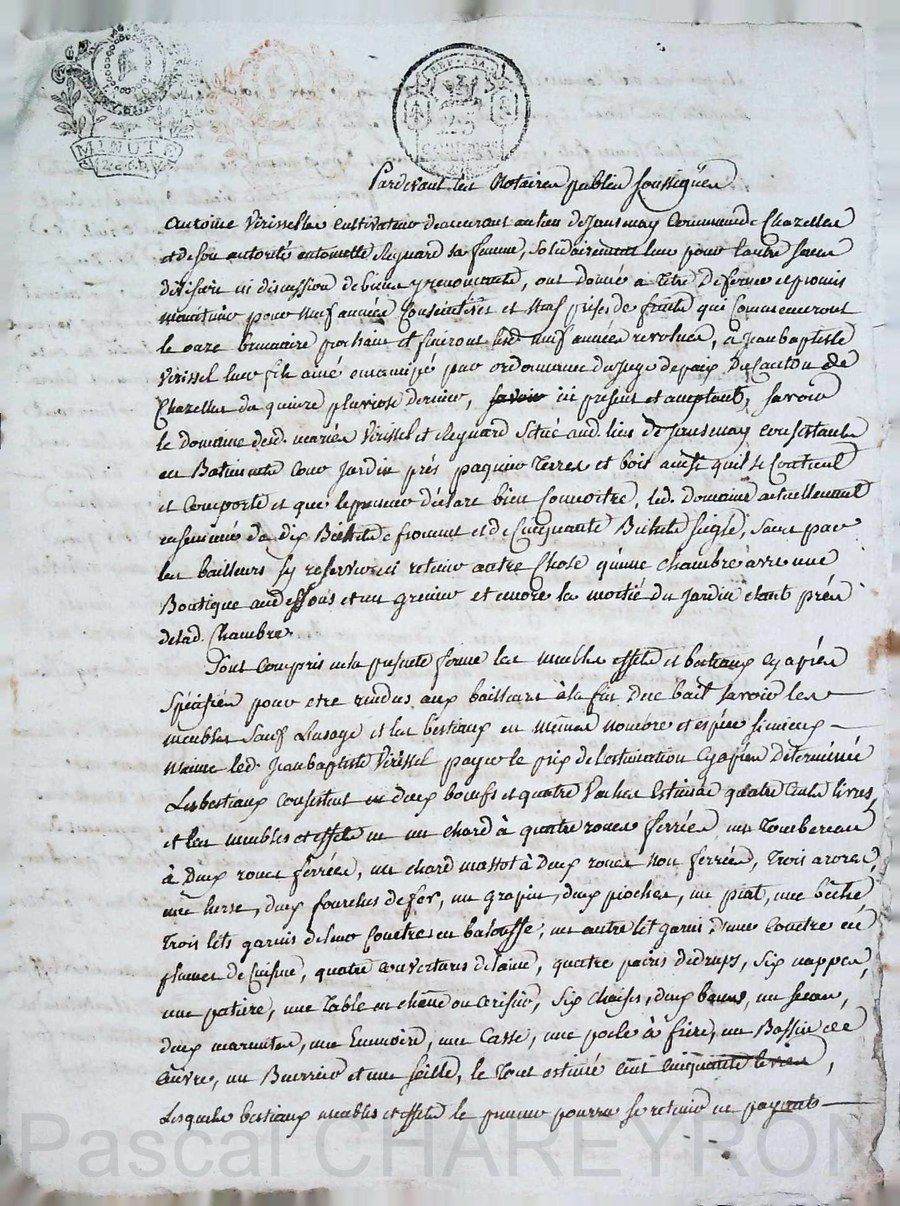 MINUTE
REP. FRA.
25
CENTIMES
Pardevant les Notaires publics soussignés
Antoine Virissel cultivateur demeurant au lieu de Jansenay Commune de Chazelles
et de son autorité antoinette Reynard sa femme, solidairement l'un pour l'autre sans
division ni discussion de biens y renonceant, ont donné à titre de ferme et promis
maintenir pour neuf années Consécutives et neuf prises de fruits que Commenceront
le onze brumaire prochain et finiront lesd. neuf années revolues, à Jean baptiste
Virissel leur fils ainé emancipé par ordonnance du juge de paix Du Canton de
Chazelles du quinze pluviose dernier, savoir ici présent et acceptant, savoir
le domaine desd. mariés Virissel et Reynard situé aud. lieu de Jansenay consistant
en Batiments cour Jardin prés paquier Terres et bois ainsi qu'il se Contient
et Comporte et que le preneur déclare bien Connoitre, led. domaine actuellement
ensemencé de dix Bichets froment et de Cinquante Bichets seigle, sans par
les bailleurs s'y reserver ni retenir autre Chose qu'une chambre avec une
Boutique au dessous et un grenier et encore la moitié du Jardin étant près
de lad. Chambre.
Sont compris en la présente ferme les meubles effets et bestiaux cy après
Spécifiés pour etre rendus aux bailleurs à la fin du bail savoir les
meubles sauf l'usage et les bestiaux en même nombre et espèce si mieux
n'aime led. Jean baptiste Virissel payer le prix de l'estimation cy après Déterminée
Les bestiaux consistent en deux bœufs et quatre Vaches Estimés quatre Cents livres,
et les meubles et effets en un chard à quatre roues ferrées un Tombereau
à Deux roues ferrées, un chard massot à Deux roues non ferrées, Trois arores,
une herse, deux fourches de fer, un grapin, deux pioches, un piat, une bêche
Trois lits garnis de leur Couetres en balouffe, un autre lit garni d'une Couetre en
plumes de Cuisine, quatre couvertures de laine, quatre paires de draps, six nappes,
une patiere, une Table en chêne ou cerisier, six chaises, deux bancs, un seau,
deux marmites, une Ecumoire, une Casse, une poële à frire, un Bassin de
Cuivre, un Buerrier et une seille, le Tout estimé cent Cinquante livres,
Lesquels bestiaux meubles et effets le preneur pourra se retenir en payant
Pascal CHAREYRON